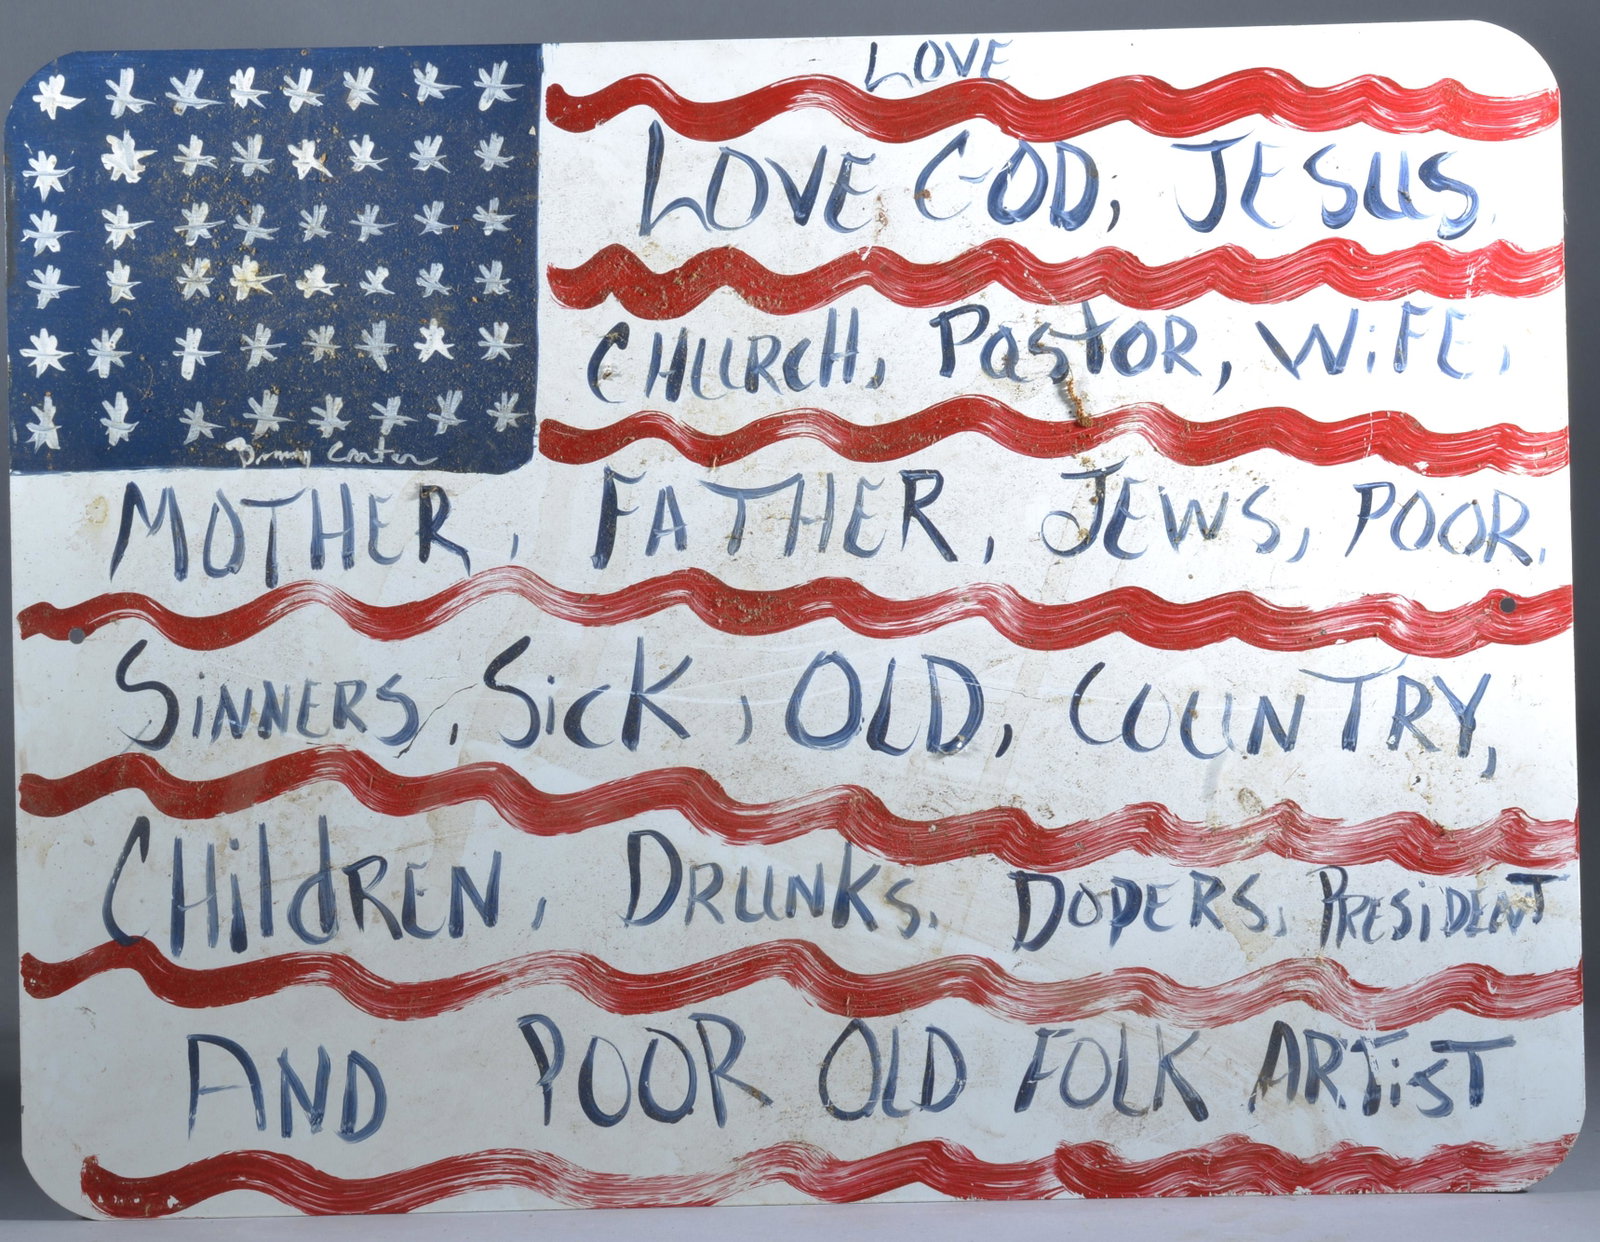 LOVE
LOVE GOD, JESUS,
CHURCH, PastOR, WiFE,
MOTHER, FATHER, JEWS, POOR,
SiNNERS, SicK, OLD, COUNTRY,
CHildREN, DRUNKS, DOPERS, PRESiDENT
AND POOR OLD FOLK ARTiST